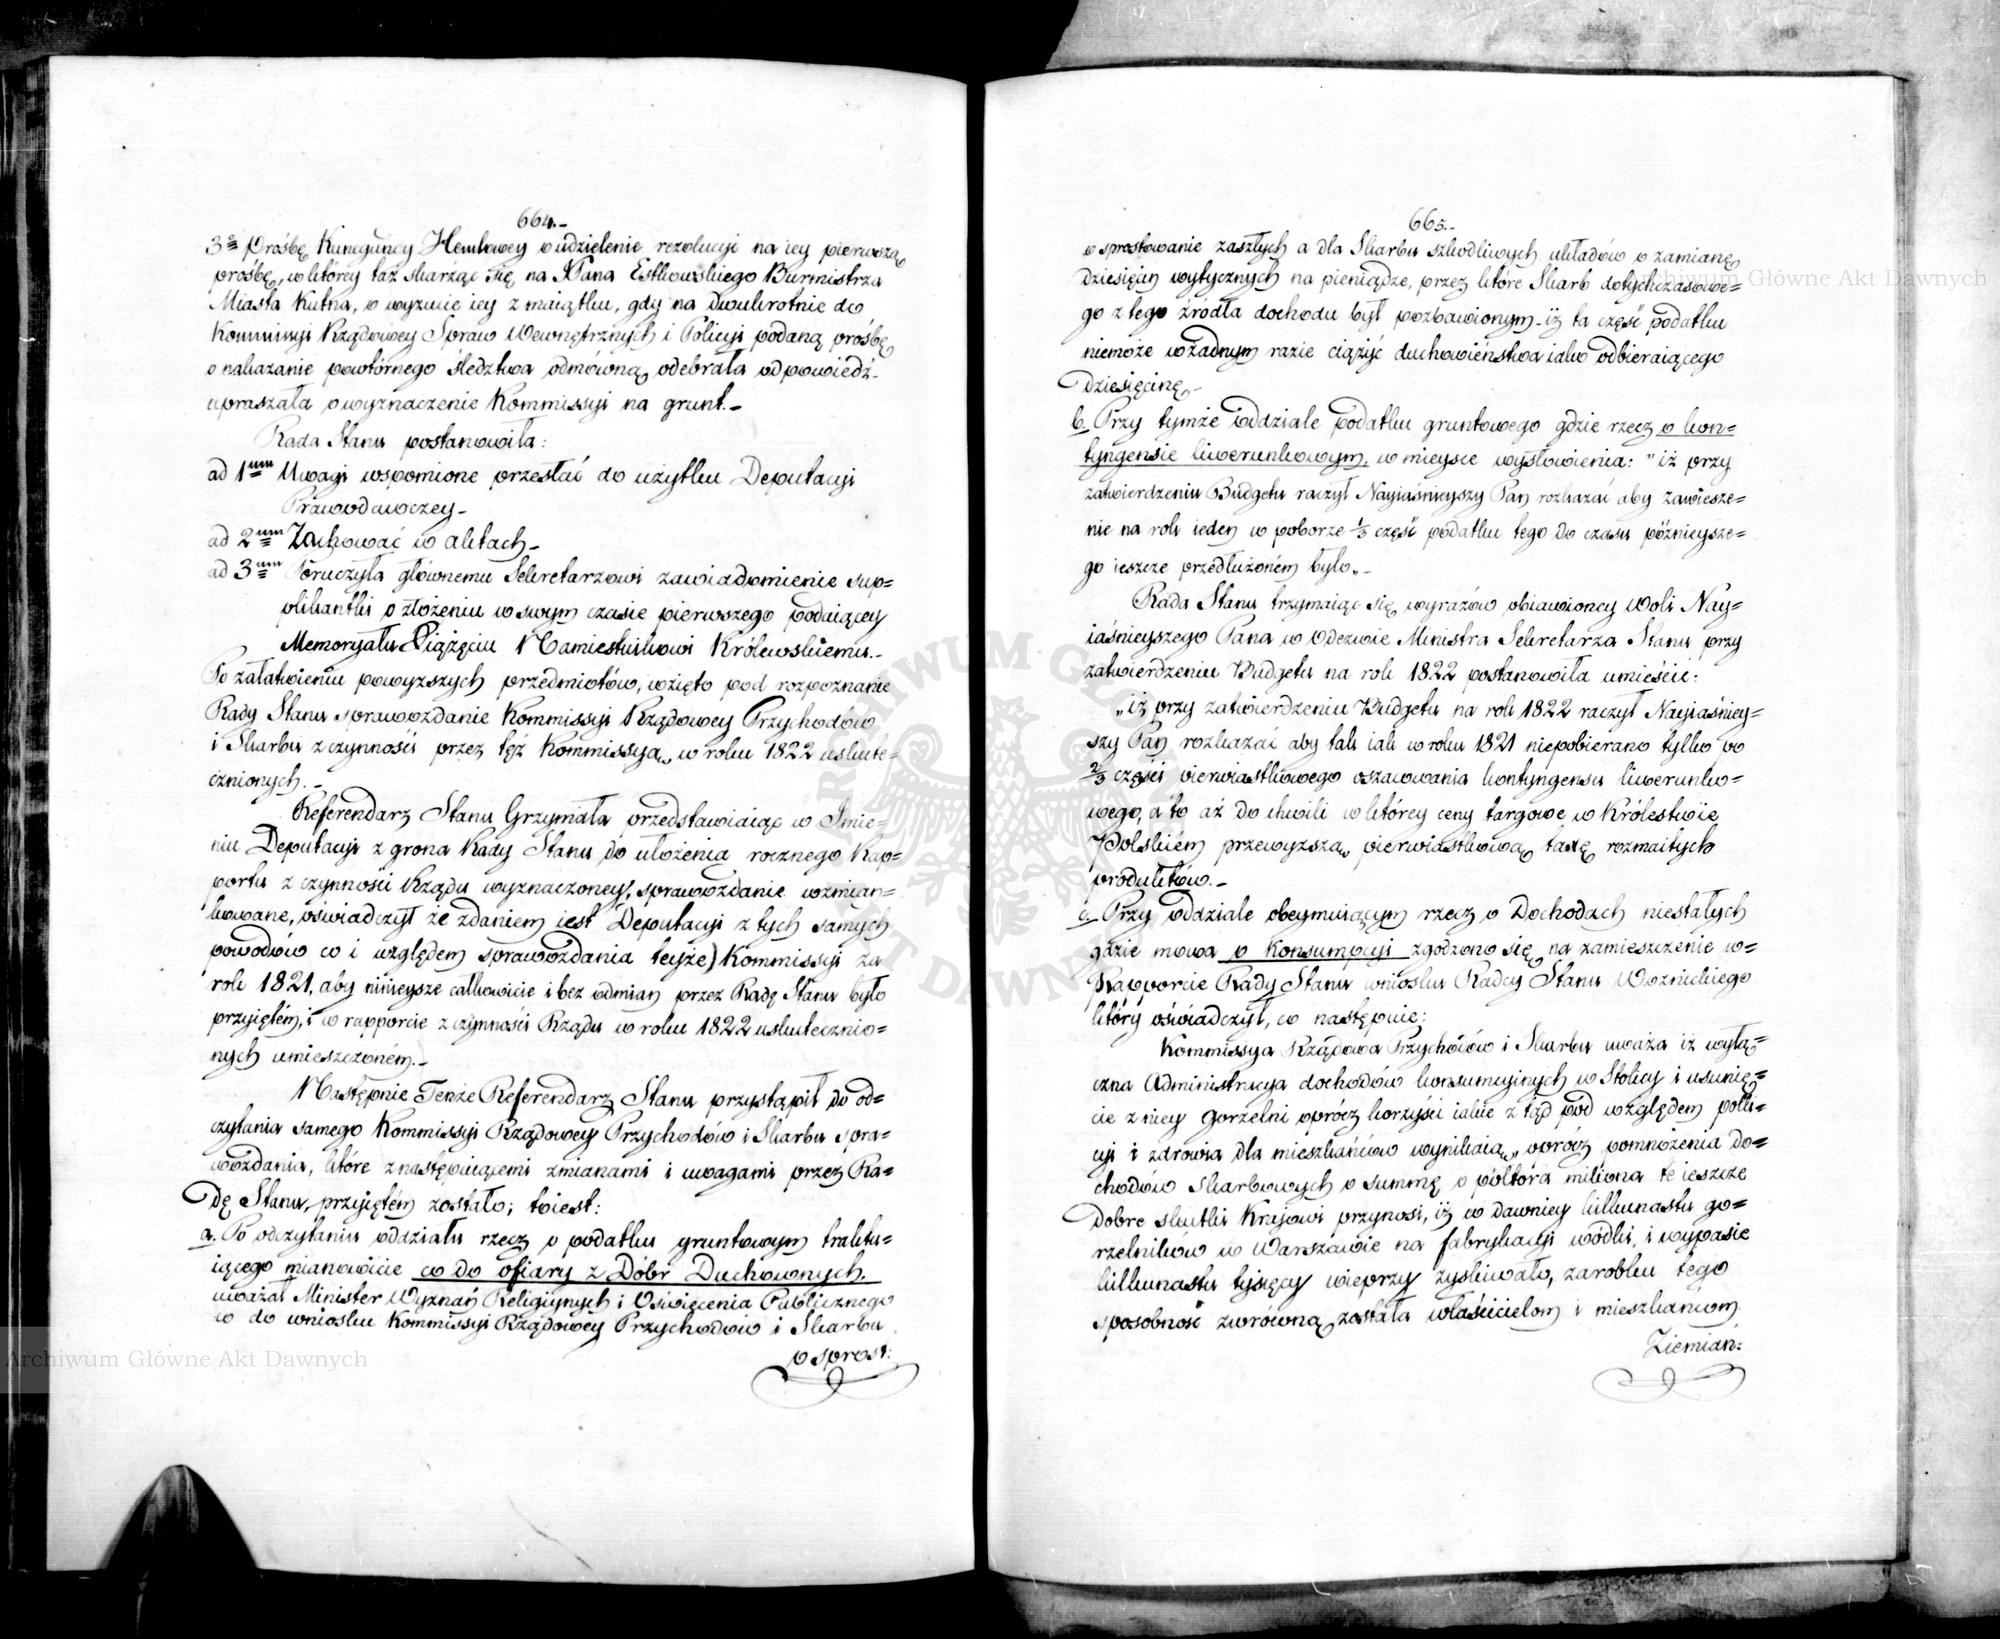 664.-
3o Prośbę Kunegundy Hemlowey o udzielenie rezolucyi na iey pierwszą
prośbę, w którey taż skarżąc się na Pana Estkowskiego Burmistrza
Miasta Kutna, o wyzucie iey z maiątku, gdy na dwukrotnie do
Kommissyi Rządowey Spraw Wewnętrznych i Policyi podaną prośbę
o nakazanie powtórnego śledztwa odmówną odebrała odpowiedź-
upraszała o wyznaczenie Kommissyi na grunt.-
Rada Stanu postanowiła:
ad 1um Uwagi wspomione przesłać do użytku Deputacyi
Prawodawczey-
ad 2um Zachować w aktach-
ad 3um Poruczyła głównemu Sekretarzowi zawiadomienie sup=
plikantki o złożeniu w swym czasie pierwszego podaiącey
Memoryału Xiążęciu Namiestnikowi Królewskiemu.-
Po załatwieniu powyższych przedmiotów, wzięto pod rozpoznanie
Rady Stanu sprawozdanie Kommissyi Rządowey Przychodów
i Skarbu z czynności przez tęż Kommissyą w roku 1822 uskute=
cznionych.-
Referendarz Stanu Grzymała przedstawiaiąc w Imie=
niu Deputacyi z grona Rady Stanu do ułożenia rocznego Rap=
portu z czynności Rządu wyznaczoney, sprawozdanie wzmian=
kowane, oświadczył że zdaniem iest Deputacyi z tych samych
powodów co i względem sprawozdania teyże Kommissyi za
rok 1821, aby ninieysze całkowicie i bez odmian przez Radę Stanu było
przyiętém, i w rapporcie z czynności Rządu w roku 1822 uskutecznio=
nych umieszczoném.-
Następnie Tenże Referendarz Stanu przystąpił do od=
czytania samego Kommissyi Rządowey Przychodów i Skarbu spra=
wozdania, które z następuiącemi zmianami i uwagami przez Ra=
dę Stanu, przyiętém zostało; toiest:
a. Po odczytaniu oddziału rzecz o podatku gruntowym traktu=
iącego mianowicie co do ofiary z Dóbr Duchownych,
uważał Minister Wyznań Religiynych i Oświecenia Publicznego
co do wniosku Kommissyi Rządowey Przychodów i Skarbu
o sprost:
665.-
o sprostowanie zaszłych a dla Skarbu szkodliwych układów o zamianę
dziesięcin wytycznych na pieniądze, przez które Skarb dotychczasowe=
go z tego źródła dochodu był pozbawionym - iż ta część podatku
niemoże w żadnym razie ciążyć duchowieństwa iako odbieraiącego
dziesięcinę.-
b. Przy tymże oddziale podatku gruntowego gdzie rzecz o kon=
tyngensie liwerunkowym, w mieysce wysłowienia: "iż przy
zatwierdzeniu Budgetu raczył Nayiaśnieyszy Pan rozkazać aby zawiesze=
nie na rok ieden w poborze 1/3 część podatku tego do czasu późnieysze=
go ieszcze przedłużoném było„-
Rada Stanu trzymaiąc się wyrazów obiawioney woli Nay=
iaśnieyszego Pana w odezwie Ministra Sekretarza Stanu przy
zatwierdzeniu Budgetu na rok 1822 postanowiła umieścić:
„iż przy zatwierdzeniu Budgetu na rok 1822 raczył Nayiaśniey=
szy Pan rozkazać aby tak iak w roku 1821 niepobierano tylko po
2/3 części pierwiastkowego oszacowania kontyngensu liwerunko=
wego, a to aż do chwili w którey ceny targowe w Królestwie
Polskiém przewyższą pierwiastkową taxę rozmaitych
produktów.-
c. Przy oddziale obeymuiącym rzecz o Dochodach niestałych
gdzie mowa o Konsumpcyi zgodzono się na zamieszczenie w=
Rapporcie Rady Stanu wniosku Radcy Stanu Woźnickiego
który oświadczył, co następuie:
Kommissya Rządowa Przychodów i Skarbu uważa iż wyłą=
czna Administracya dochodów konsumcyinych w Stolicy i usunię=
cie z niey gorzelni oprócz korzyści iakie z tąd pod względem polli=
cyi i zdrowia dla mieszkańców wynikaią, oprócz pomnożenia do=
chodów Skarbowych o summę o półtóra miliona te ieszcze
dobre skutki Krajowi przynosi, iż co dawniey kilkunastu go=
rzelników w Warszawie na fabrykacyi wódki, i wypasie
kilkunastu tysięcy wieprzy zyskiwało, zarobku tego
sposobność zwróconą została właścicielom i mieszkańcom
Ziemiań:
Archiwum Główne Akt Dawnych
Archiwum Główne Akt Dawnych
ARCHIWUM GŁÓWNE AKT DAWNYCH